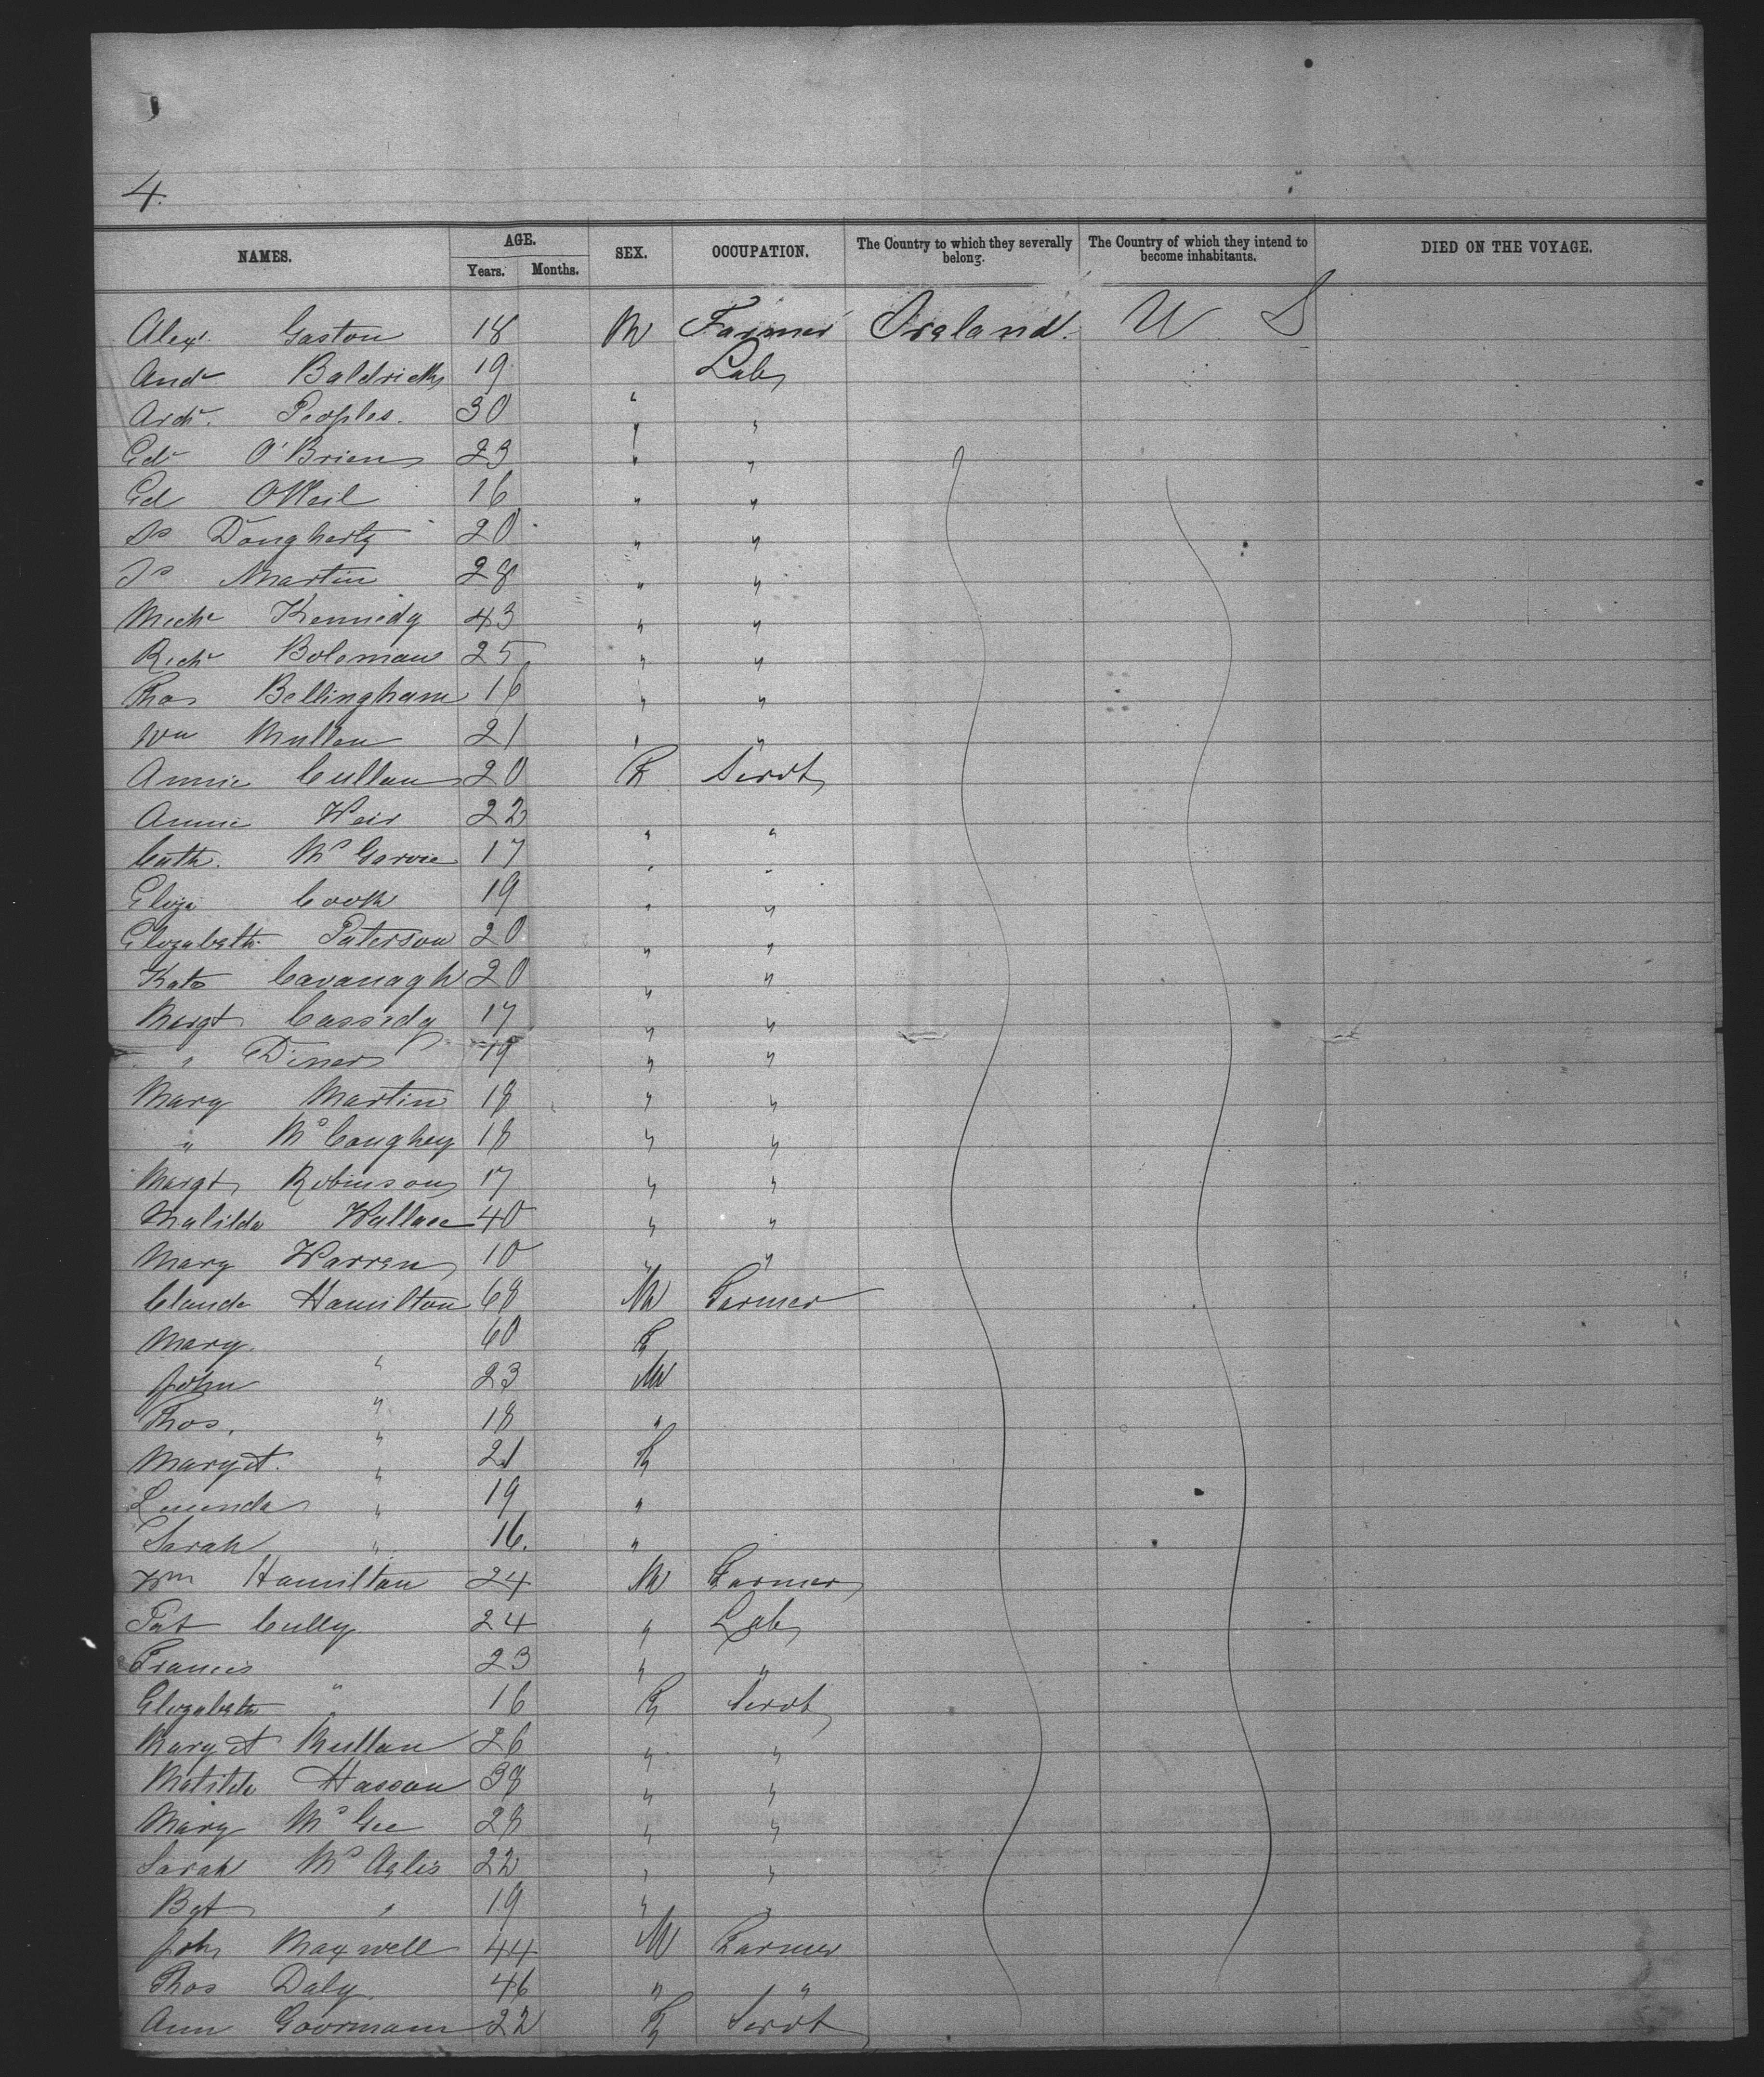 4.
NAMES. AGE. SEX. OCCUPATION. The Country to which they severally belong. The Country of which they intend to become inhabitants. DIED ON THE VOYAGE.
Years. Months.
Alexr. Gaston 18 M Farmer Ireland. U S
Andr Baldrick 19 Lab
Archr. Peoples. 30 " "
Edr O'Brien 23 " "
Ed ONeil 16 " "
Js Dougherty 20 " "
Js Martin 28 " "
Michl Kennedy 43 " "
Richr Boleman 25 " "
Thos Bellingham 16 " "
Wm Mullen 21 " "
Annie Cullen 20 F Servt
Annie Weir 22 " "
Cath. McGarvie 17 " "
Eliza Cook 19 " "
Elizabeth Paterson 20 " "
Kate Cavanagh 20 " "
Margt Cassidy 17 " "
" Diner 19 " "
Mary Martin 18 " "
" McCaughey 18 " "
Margt Robinson 17 " "
Matilda Wallace 40 " "
Mary Warren 10 " "
Claude Hamilton 68 M Farmer
Mary " 60 F
John " 23 M
Thos. " 18 "
Mary A. " 21 F
Lucinda " 19 "
Sarah " 16. "
Wm Hamilton 24 M Farmer
Pat Cully 24 " Lab
Francis " 23 " "
Elizabeth " 16 F Servt
Mary A Mullan 26 " "
Matilda Hassan 38 " "
Mary McGee 28 " "
Sarah McAglis 22 " "
Bgt " 19 " "
John Maxwell 44 M Farmer
Thos Daly 46 " "
Ann Goormam 22 F Servt